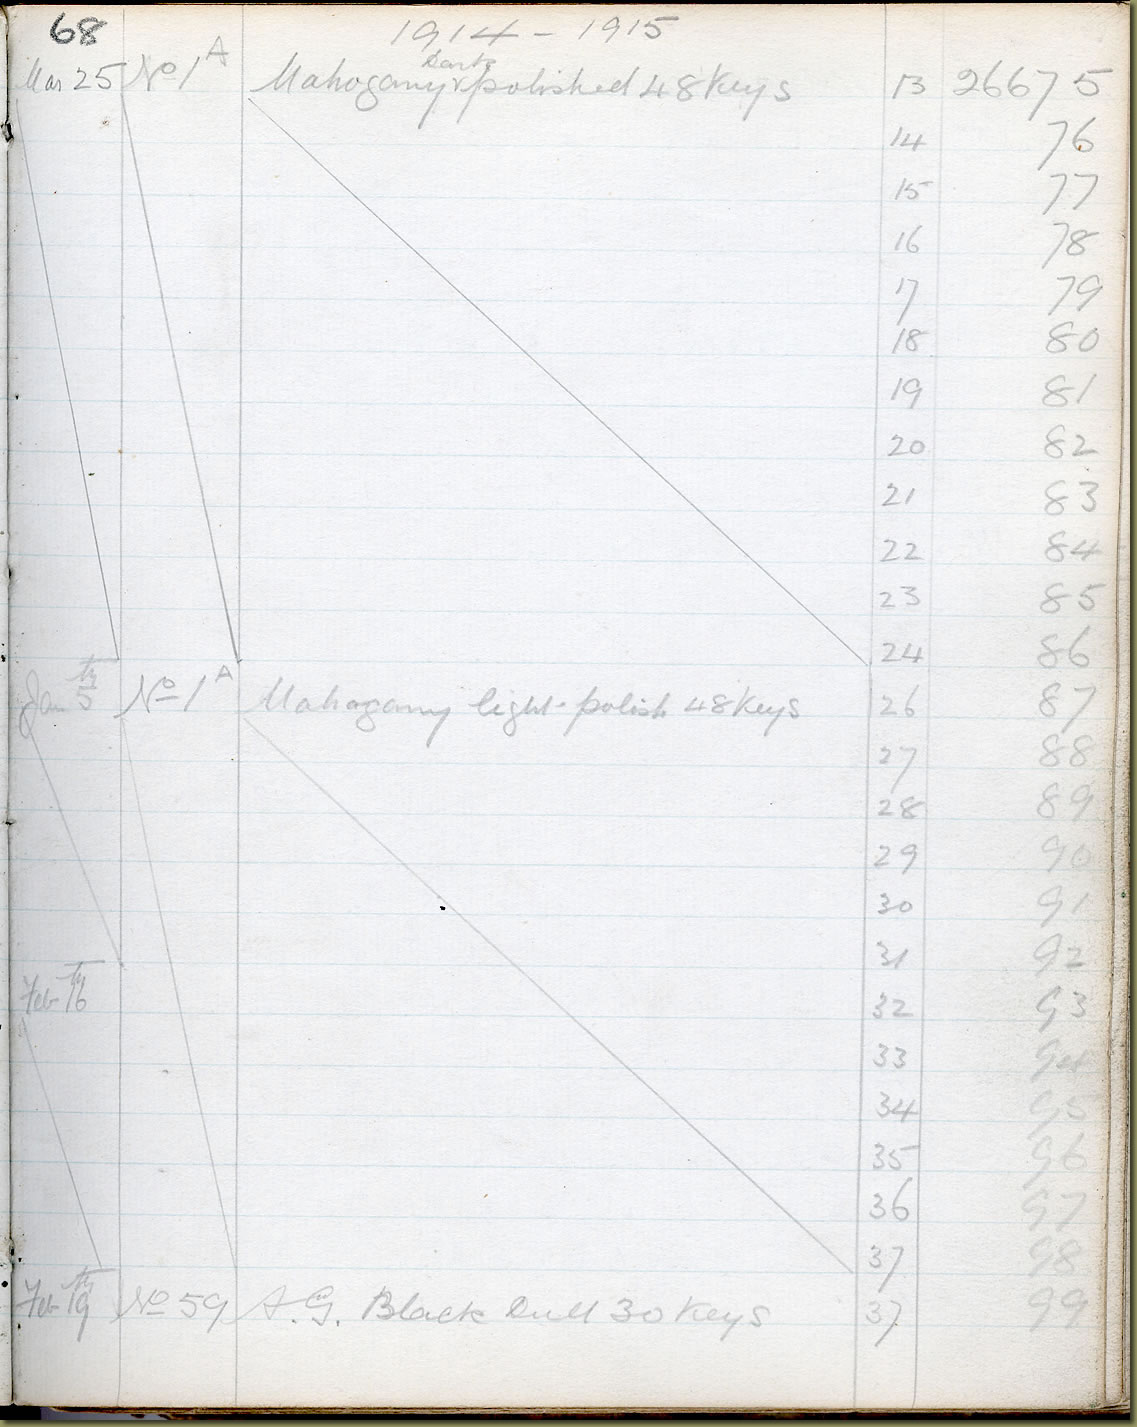 68 1914 - 1915
Mar 25 No 1 A Mahogany & Dark polished 48 Keys 13 26675
14 76
15 77
16 78
17 79
18 80
19 81
20 82
21 83
22 84
23 85
24 86
Jan 5th No 1 A Mahogany light polish 48 Keys 26 87
27 88
28 89
29 90
30 91
31 92
Feb 16th 32 93
33 94
34 95
35 96
36 97
37 98
Feb 19th No 59 A.G. Black Dull 30 Keys 37 99